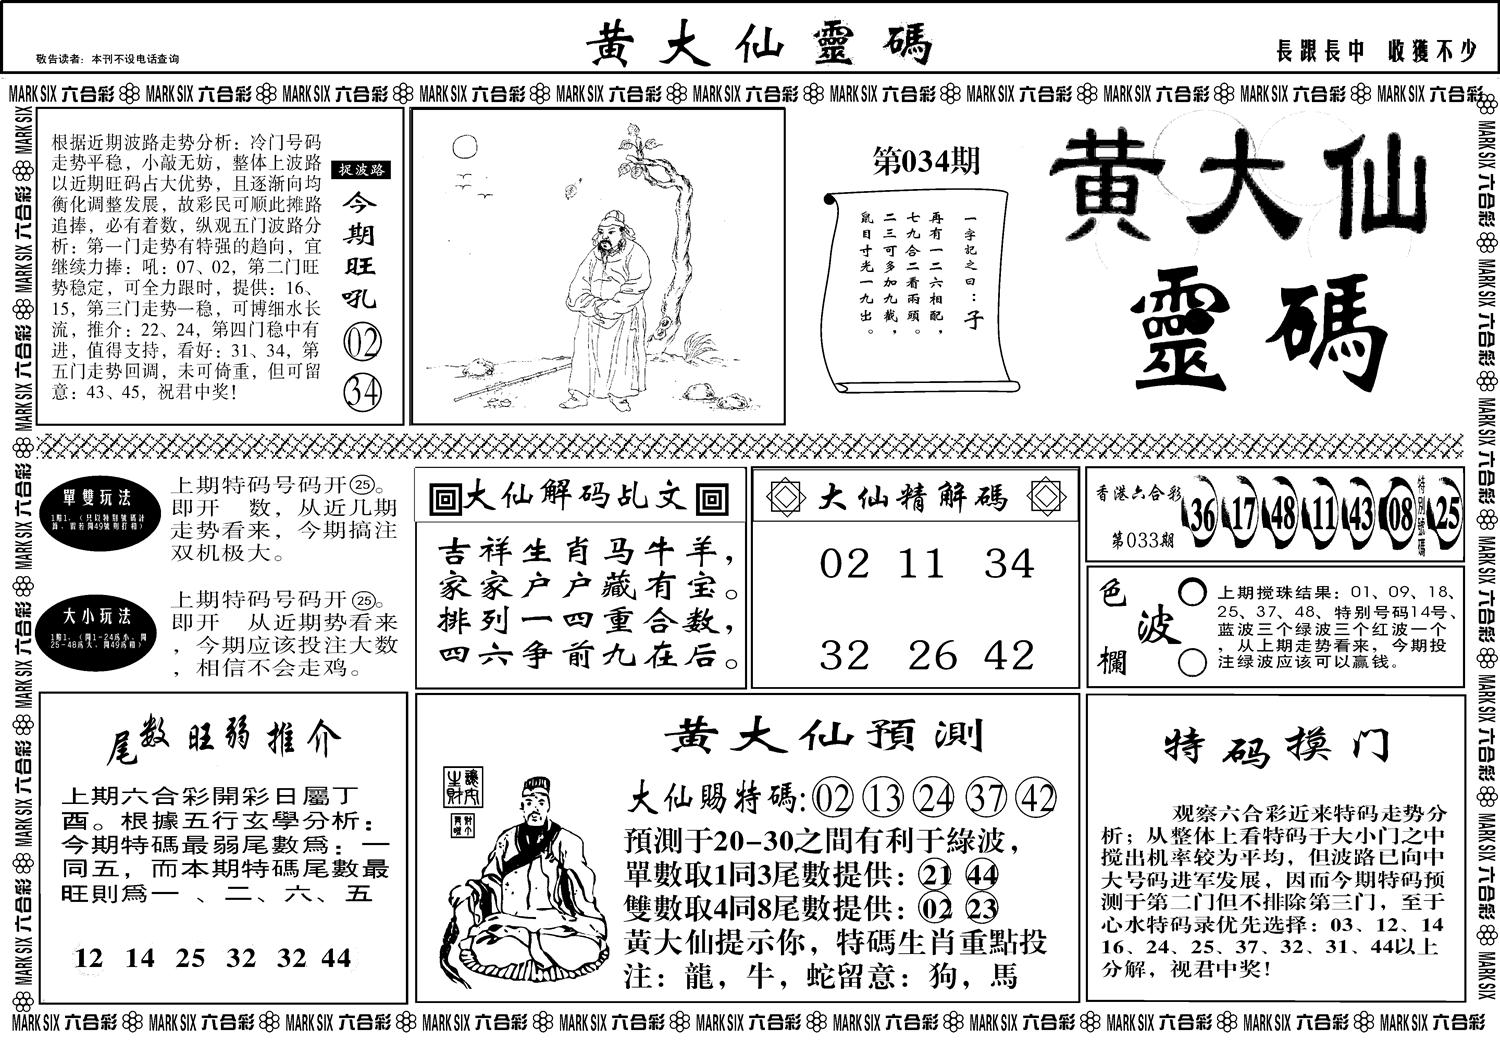 敬告读者：本刊不设电话查询
黄大仙靈碼
長跟長中 收獲不少
MARK SIX 六合彩 MARK SIX 六合彩 MARK SIX 六合彩 MARK SIX 六合彩 MARK SIX 六合彩 MARK SIX 六合彩 MARK SIX 六合彩 MARK SIX 六合彩 MARK SIX 六合彩 MARK SIX 六合彩 MARK SIX 六合彩
根据近期波路走势分析：冷门号码
走势平稳，小敲无妨，整体上波路
以近期旺码占大优势，且逐渐向均
衡化调整发展，故彩民可顺此摊路
追捧，必有着数，纵观五门波路分
析：第一门走势有特强的趋向，宜
继续力捧：吼：07、02，第二门旺
势稳定，可全力跟时，提供：16、
15，第三门走势一稳，可博细水长
流，推介：22、24，第四门稳中有
进，值得支持，看好：31、34，第
五门走势回调，未可倚重，但可留
意：43、45，祝君中奖!
捉波路
今期旺吼
02
34
第034期
一字記之曰：子
再有一二六相配，
七九合二看兩頭。
二三可多加九截，
鼠目寸光一九出。
黄大仙
靈碼
單雙玩法
1賠1.（只以特别號碼計
算，假若開49號則打和）
上期特码号码开25。
即开 数，从近几期
走势看来，今期搞注
双机极大。
大小玩法
1賠1.（開1-24爲小，開
25-48爲大，開49爲和）
上期特码号码开25。
即开 从近期势看来
，今期应该投注大数
，相信不会走鸡。
大仙解码乩文
吉祥生肖马牛羊，
家家户户藏有宝。
排列一四重合数，
四六争前九在后。
大仙精解碼
02 11 34
32 26 42
香港六合彩
第033期
36 17 48 11 43 08
特别號碼
25
色波欄
上期搅珠结果：01、09、18、
25、37、48、特别号码14号、
蓝波三个绿波三个红波一个
，从上期走势看来，今期投
注绿波应该可以赢钱。
尾数旺弱推介
上期六合彩開彩日屬丁
酉。根據五行玄學分析：
今期特碼最弱尾數爲：一
同五，而本期特碼尾數最
旺則爲一 、二、六、五
12 14 25 32 32 44
黄大仙預測
大仙賜特碼:02 13 24 37 42
預測于20-30之間有利于綠波，
單數取1同3尾數提供：21 44
雙數取4同8尾數提供：02 23
黃大仙提示你，特碼生肖重點投
注：龍，牛，蛇留意：狗，馬
特码摸门
观察六合彩近来特码走势分
析；从整体上看特码于大小门之中
搅出机率较为平均，但波路已向中
大号码进军发展，因而今期特码预
测于第二门但不排除第三门，至于
心水特码录优先选择：03、12、14
16、24、25、37、32、31、44以上
分解，视君中奖!
MARK SIX 六合彩 MARK SIX 六合彩 MARK SIX 六合彩 MARK SIX 六合彩 MARK SIX 六合彩 MARK SIX 六合彩 MARK SIX 六合彩 MARK SIX 六合彩 MARK SIX 六合彩 MARK SIX 六合彩 MARK SIX 六合彩